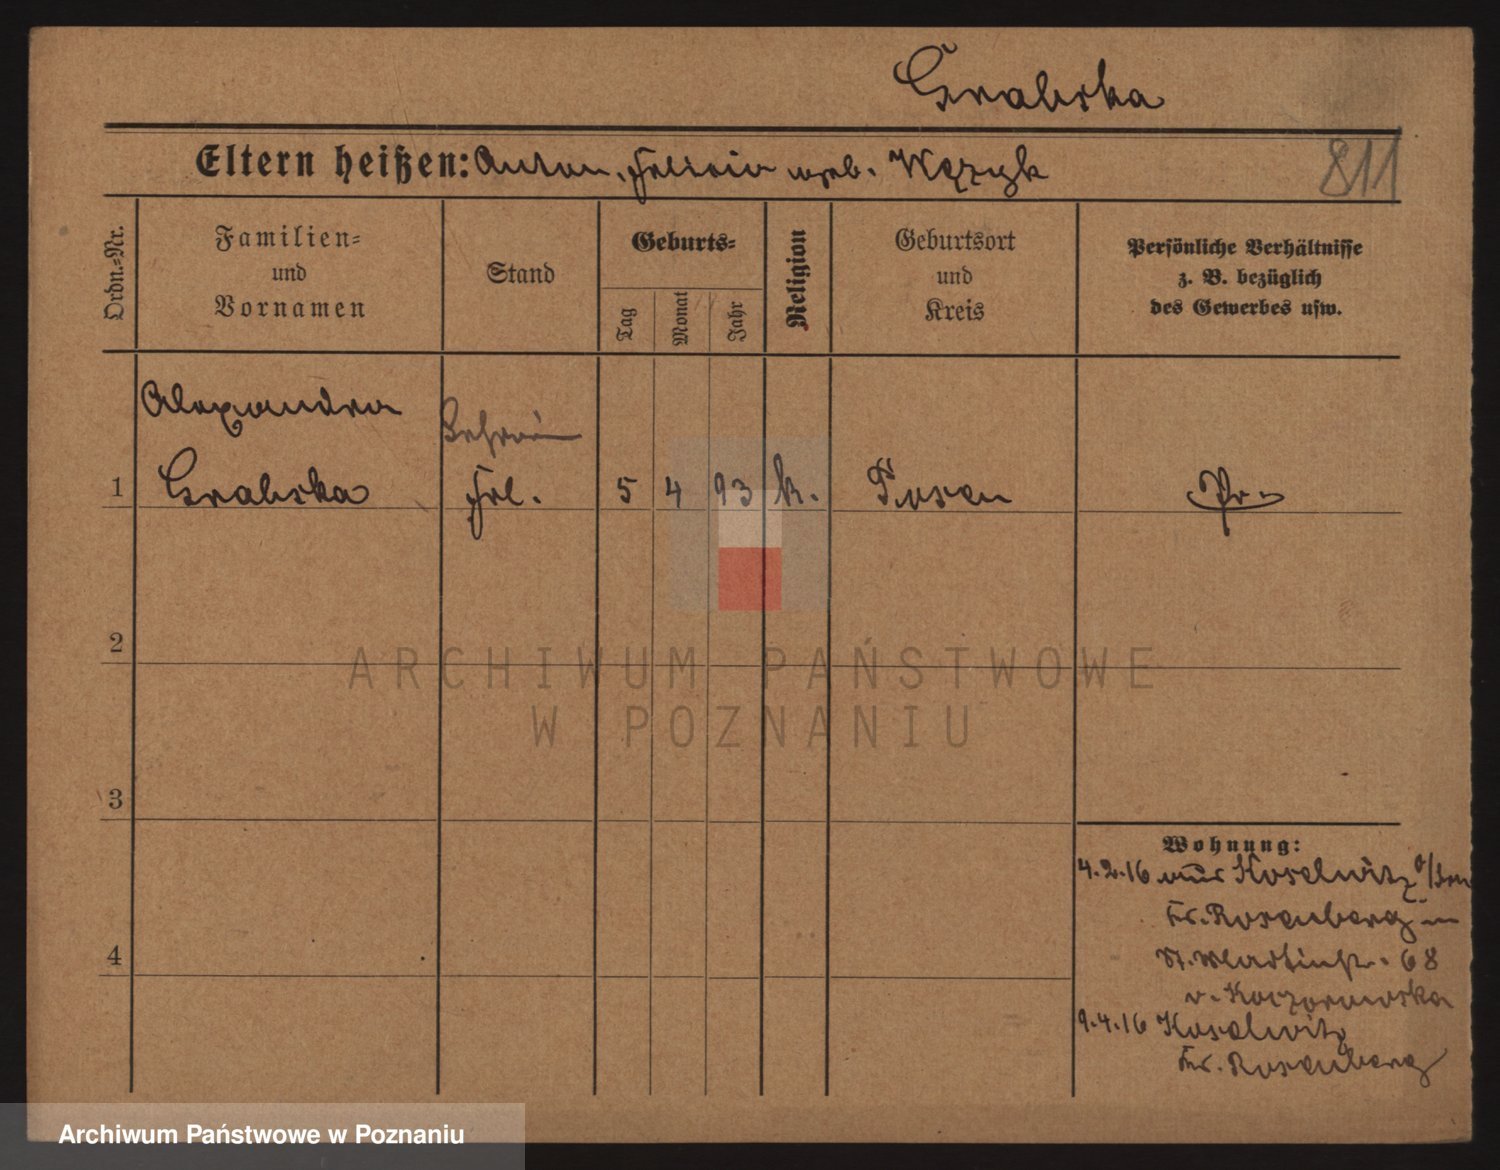 Grabska
Eltern heißen: Anton, Felicia geb. Węzyk
811
Ordn.-Nr.
Familien-
und
Vornamen
Stand
Geburts-
Tag
Monat
Jahr
Religion
Geburtsort
und
Kreis
Persönliche Verhältnisse
z. B. bezüglich
des Gewerbes usw.
Alexandra
1 Grabska Frl. 5 4 93 k. Posen Pr.
2
3
4
Wohnung:
4.2.16 aus Koselwitz
Kr. Rosenberg in
St. Martinstr. 68
v. Koczorowska
9.4.16 Koselwitz
Kr. Rosenberg
ARCHIWUM PAŃSTWOWE
W POZNANIU
Archiwum Państwowe w Poznaniu